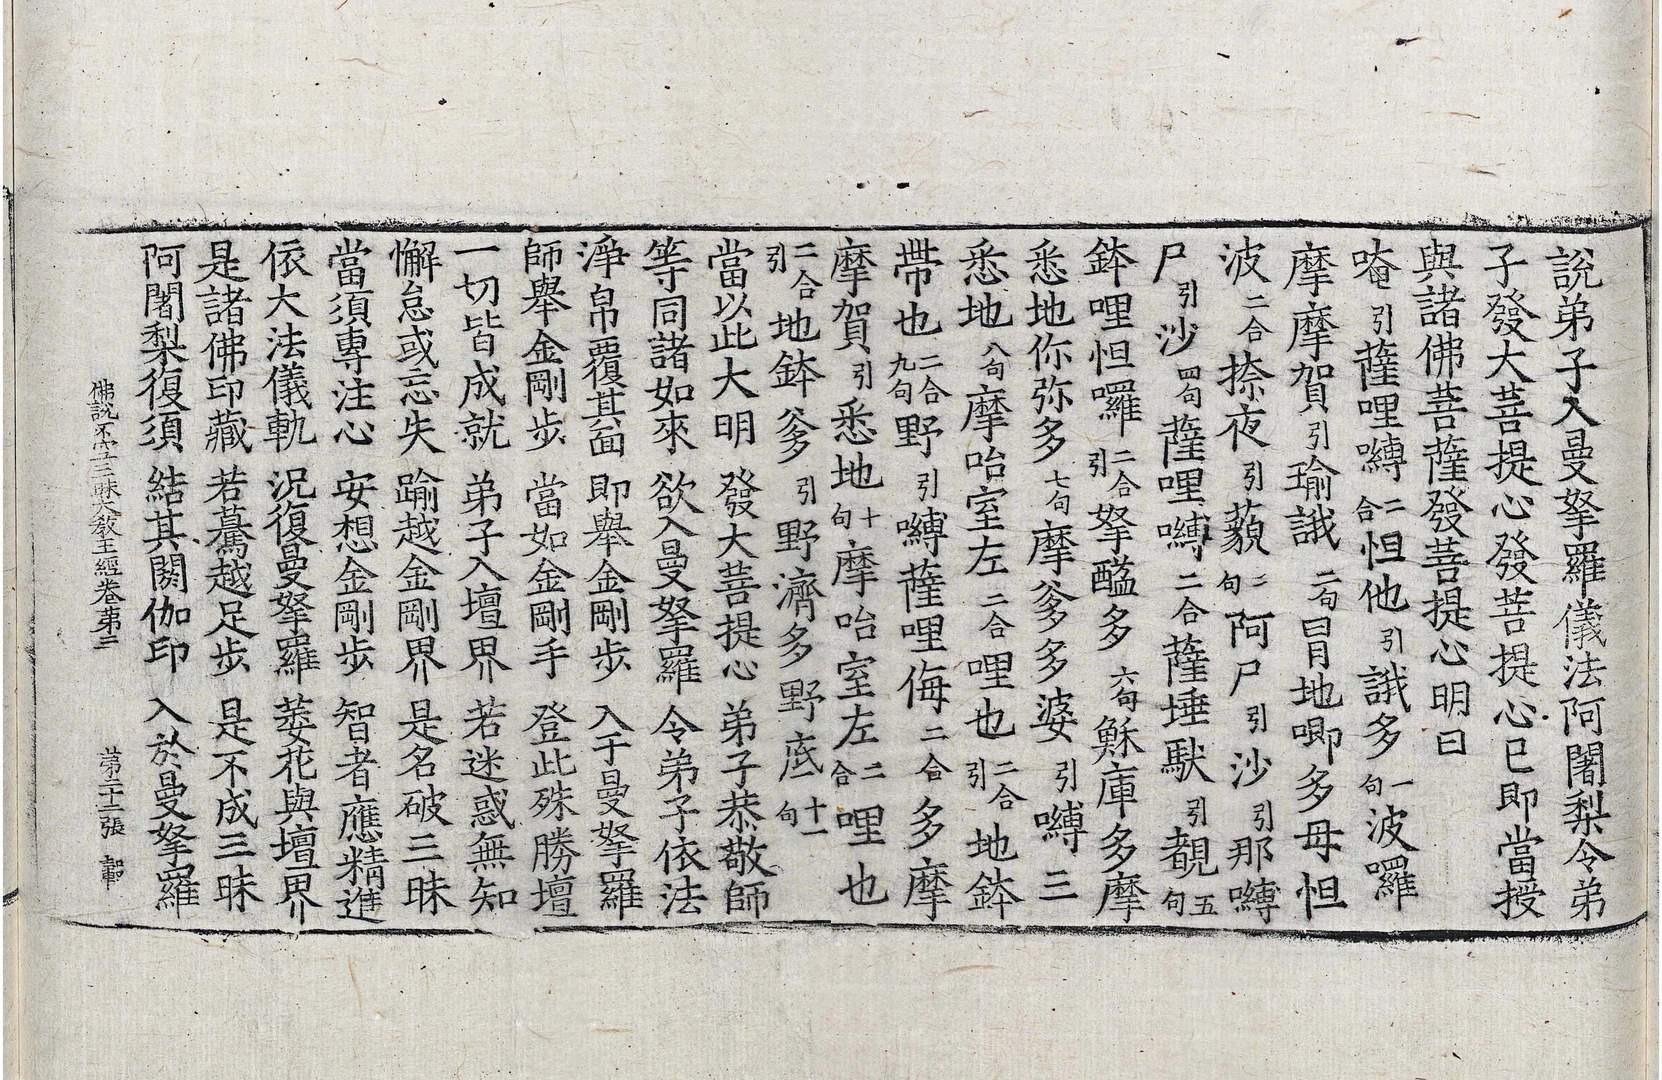 說弟子入曼拏羅儀法阿闍梨令弟
子發大菩提心發菩提心已即當授
與諸佛菩薩發菩提心明曰
唵引薩哩嚩二合怛他引誐多一句波囉
摩摩賀引瑜誐二句冐地唧多母怛
波二合捺夜引藐二句阿尸引沙引那嚩
尸引沙四句薩哩嚩二合薩埵馱引覩五句
鉢哩怛囉二合引拏醯多六句穌庫多摩
悉地你弥多七句摩爹多婆引嚩三
悉地八句摩咍室左二合哩也二合引地鉢
帶也二合九句野引嚩薩哩侮二合多摩
摩賀引悉地十句摩咍室左二合哩也
二合引地鉢爹引野濟多野底十一句
當以此大明　發大菩提心　弟子恭敬師
等同諸如來　欲入曼拏羅　令弟子依法
淨帛覆其面　即舉金剛步　入于曼拏羅
師舉金剛步　當如金剛手　登此殊勝壇
一切皆成就　弟子入壇界　若迷惑無知
懈怠或忘失　踰越金剛界　是名破三昧
當須專注心　安想金剛步　智者應精進
依大法儀軌　況復曼拏羅　萎花與壇界
是諸佛印藏　若驀越足步　是不成三昧
阿闍梨復須　結其閼伽印　入於曼拏羅
佛說不空三昧大教王經卷第三　第二十二張